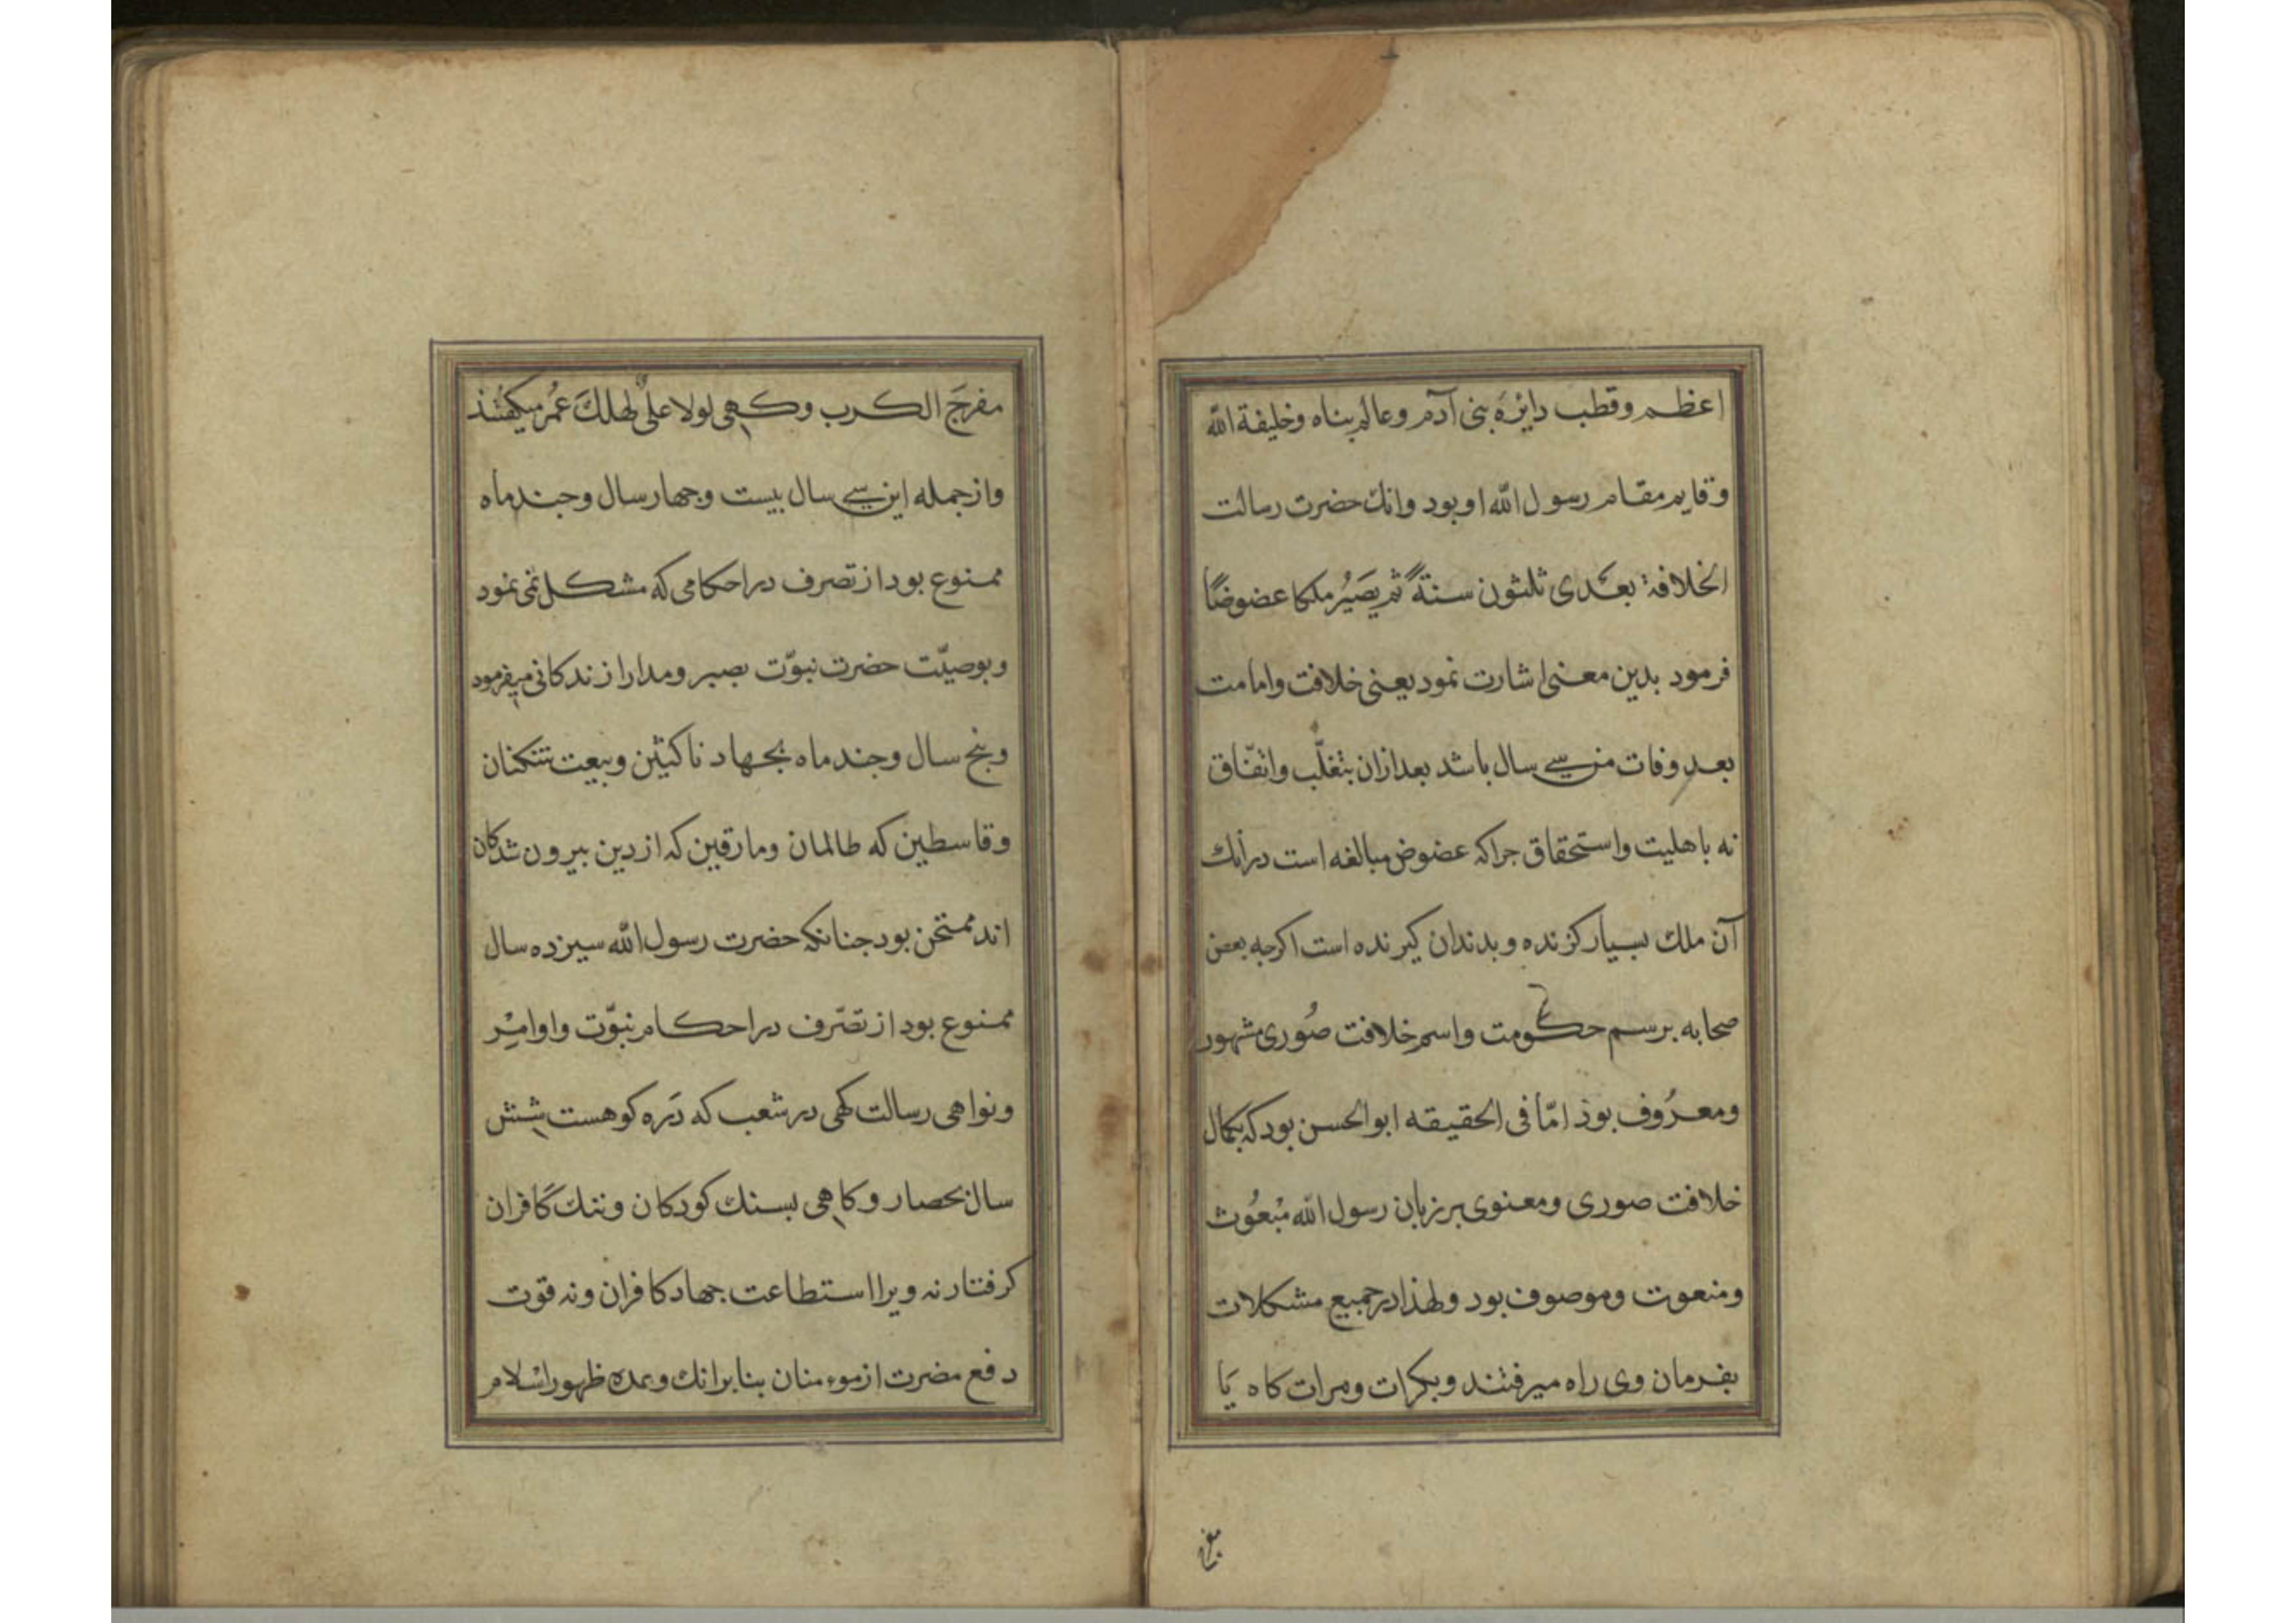 اعظم وقطب دایرهٔ بنی آدم وعالم پناه وخلیفة الله
وقایم مقام رسول الله او بود وانك حضرت رسالت
الخلافة بعدی ثلثون سنةً ثم یصیُر ملکا عضوضًا
فرمود بدین معنی اشارت نمود یعنی خلافت وامامت
بعد وفات من سی سال باشد بعد ازان بتغلّب واتفّاق
نه باهلیت واستحقاق جراکه عضوض مبالغه است در انك
آن ملك بسیار کزنده وبدندان کیرنده است اکرجه بعض
صحابه برسم حکومت واسم خلافت صُوری مشهور
ومعرُوف بوذ امّا فی الحقیقه ابوالحسن بود که بکمال
خلافت صوری ومعنوی بر زبان رسول الله مبعُوث
ومنعوت وموصوف بود ولهذا در جمیع مشکلات
بفرمان وی راه میرفتند وبکرات ومرات کاه یَا
مفرج
مفرجَ الکرب وکهی لولا علیٌ لهلكَ عمُر میکفتند
واز جمله این سی سال بیست وجهار سال وجند ماه
ممنوع بود از تصرف در احکامی که مشکل نمی نمود
وبوصیّت حضرت نبوّت بصبر ومدارا زندکانی میفرمود
وبنج سال وجند ماه بجهاد ناکثین وبیعت شکنان
وقاسطین که ظالمان ومارقین که از دین بیرون شدکان
اند ممتحن بود جنانکه حضرت رسول الله سیزده سال
ممنوع بود از تصّرف در احکام نبوّت واوامر
ونواهی رسالت کهی در شعب که دَره کوهست شش
سال بحصار وکاهی بسنك کودکان وننك کافران
کرفتار نه ویرا استطاعت جهاد کافران ونه قوت
دفع مضرت از موءمنان بنابرانك وعده ظهور اسلام